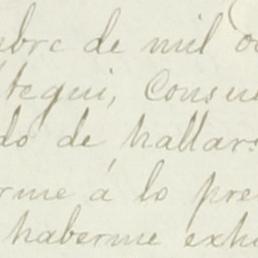 mbre de mil oc
tegui, Consue
do de hallars
rme á lo pre
haberme exhi